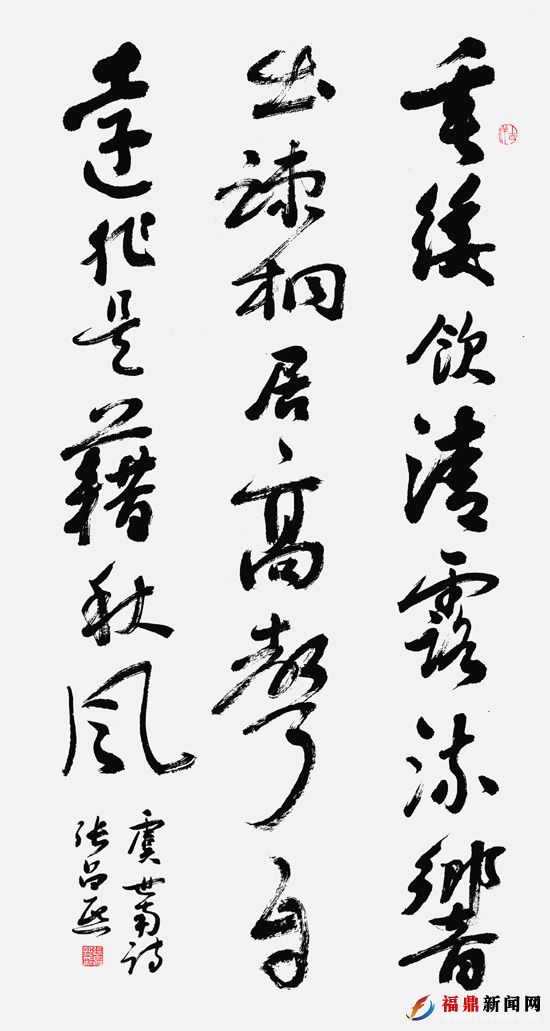 垂緌飲清露流響
出疎桐居高聲自
遠非是藉秋風
虞世南詩
張
福鼎新闻网